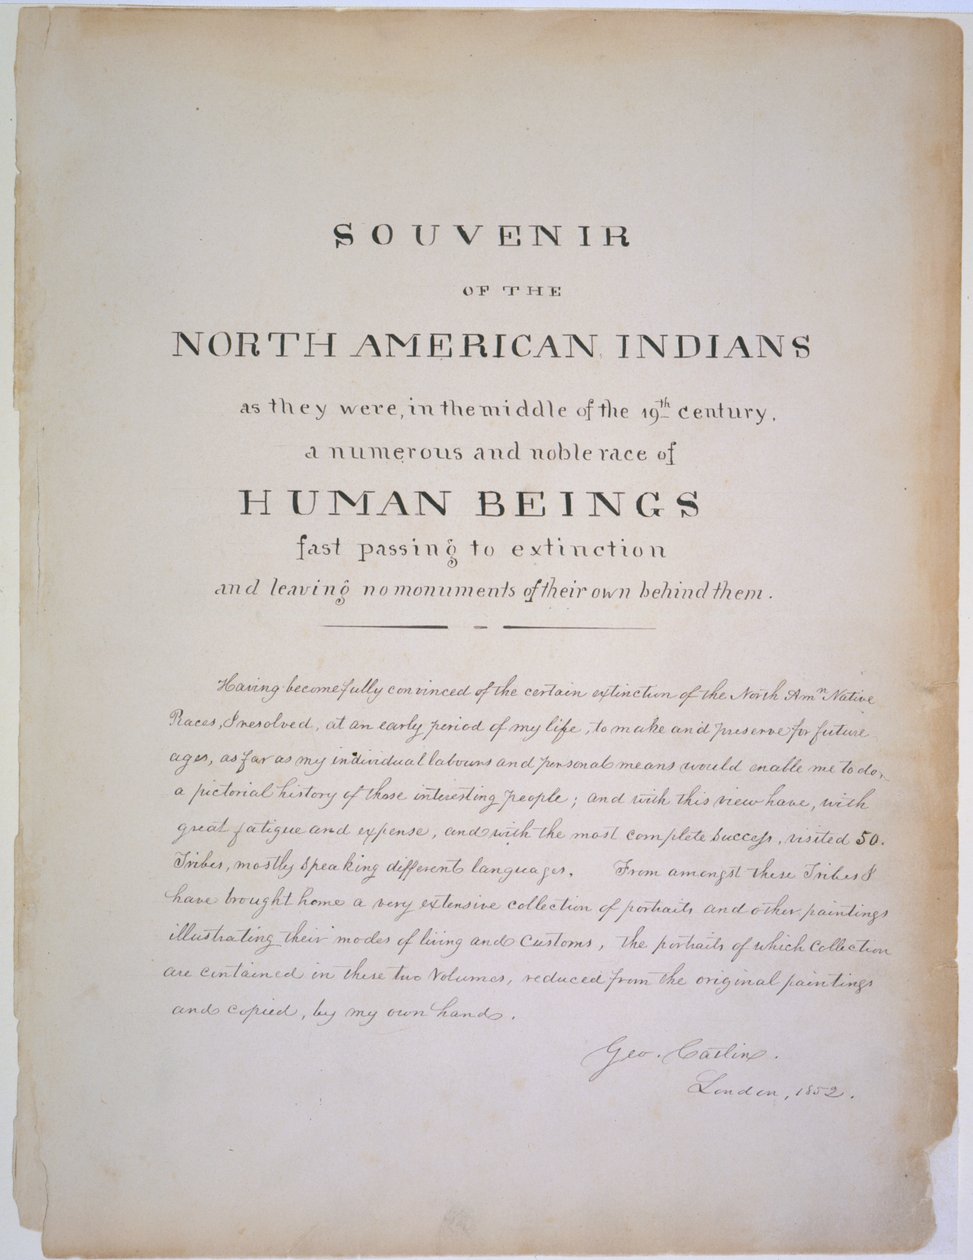 SOUVENIR
OF THE
NORTH AMERICAN INDIANS
as they were, in the middle of the 19th century,
a numerous and noble race of
HUMAN BEINGS
fast passing to extinction
and leaving no monuments of their own behind them.
Having become fully convinced of the certain extinction of the North Amn Native
Races, I resolved, at an early period of my life, to make and preserve for future
ages, as far as my individual labours and personal means would enable me to do,
a pictorial history of those interesting people; and with this view have, with
great fatigue and expense, and with the most complete success, visited 50.
Tribes, mostly speaking different languages. From amongst these Tribes I
have brought home a very extensive collection of portraits and other paintings
illustrating their modes of living and Customs, the portraits of which Collection
are contained in these two Volumes, reduced from the original paintings
and copied, by my own hand.
Geo. Catlin.
London, 1852.